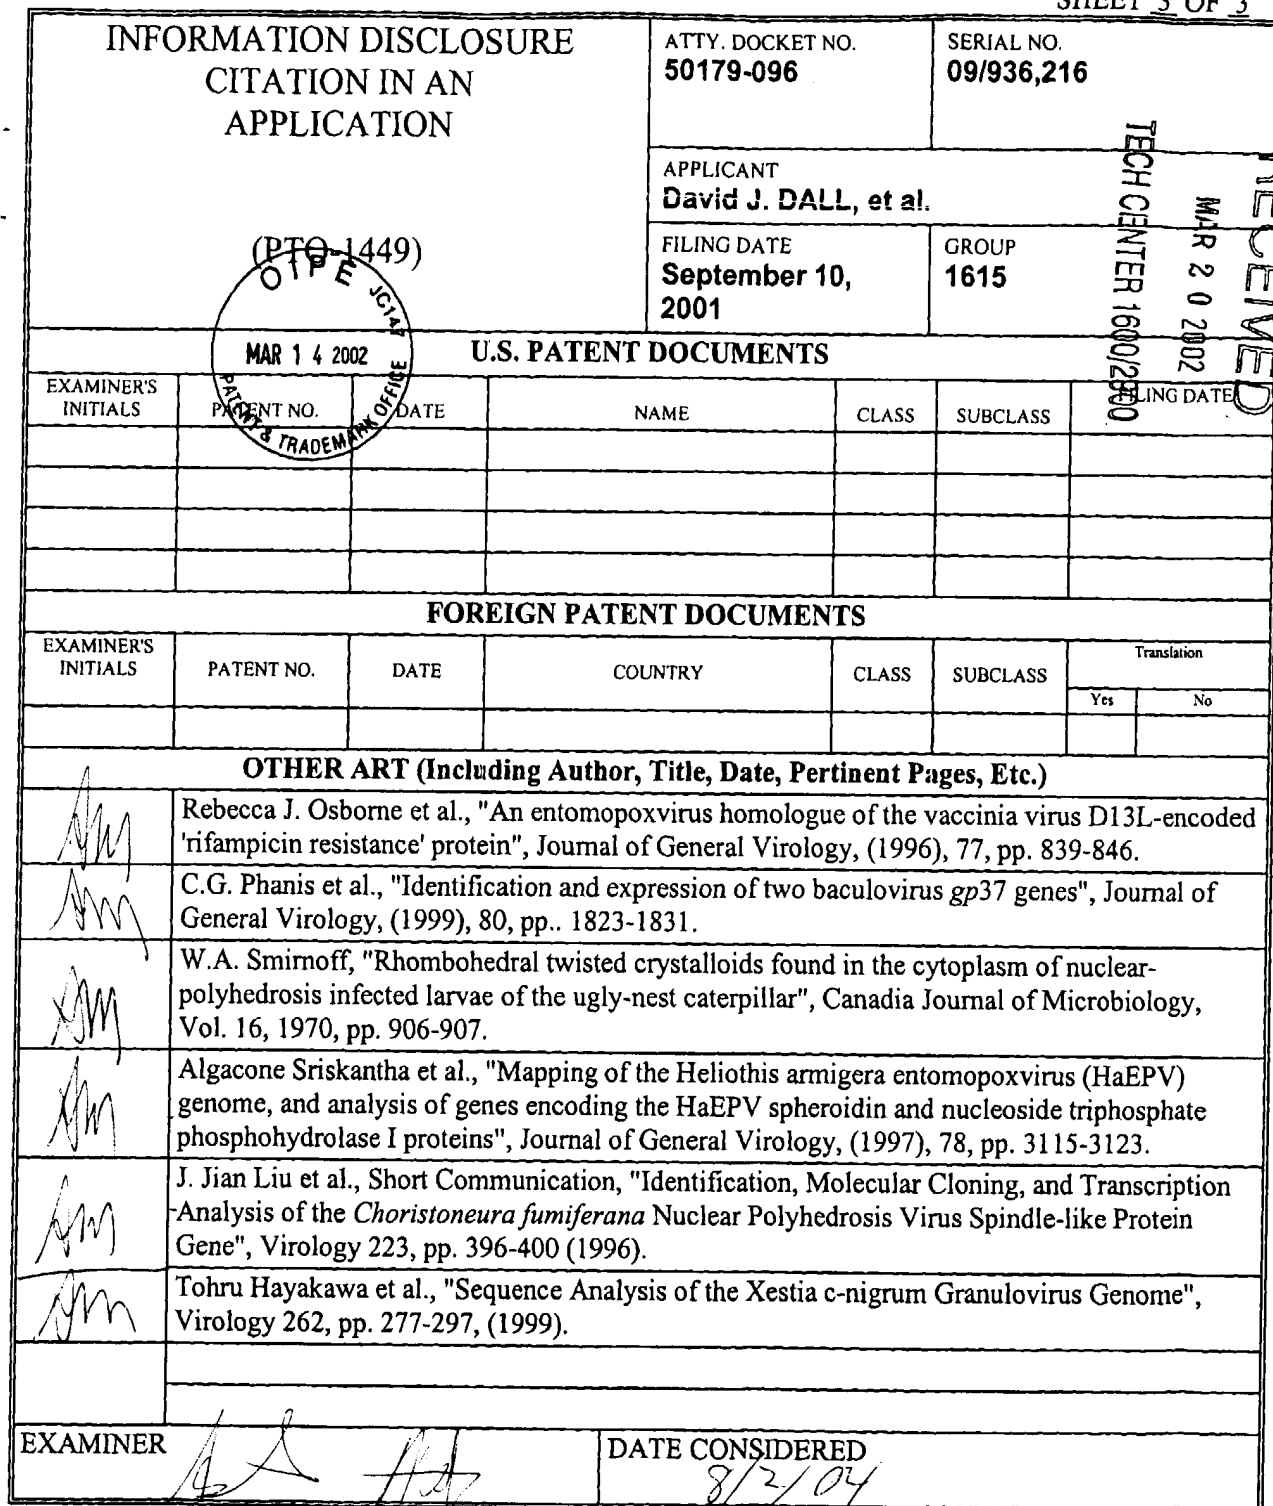 SHEET 3 OF 3
INFORMATION DISCLOSURE
CITATION IN AN
APPLICATION
(PTO-1449)
ATTY. DOCKET NO.
50179-096
SERIAL NO.
09/936,216
APPLICANT
David J. DALL, et al.
FILING DATE
September 10,
2001
GROUP
1615
RECEIVED
MAR 20 2002
TECH CENTER 1600/2900
OIPE JC147
MAR 14 2002
PATENT & TRADEMARK OFFICE
U.S. PATENT DOCUMENTS
EXAMINER'S
INITIALS
PATENT NO.
DATE
NAME
CLASS
SUBCLASS
FILING DATE
FOREIGN PATENT DOCUMENTS
EXAMINER'S
INITIALS
PATENT NO.
DATE
COUNTRY
CLASS
SUBCLASS
Translation
Yes
No
OTHER ART (Including Author, Title, Date, Pertinent Pages, Etc.)
Rebecca J. Osborne et al., "An entomopoxvirus homologue of the vaccinia virus D13L-encoded
'rifampicin resistance' protein", Journal of General Virology, (1996), 77, pp. 839-846.
C.G. Phanis et al., "Identification and expression of two baculovirus gp37 genes", Journal of
General Virology, (1999), 80, pp.. 1823-1831.
W.A. Smirnoff, "Rhombohedral twisted crystalloids found in the cytoplasm of nuclear-
polyhedrosis infected larvae of the ugly-nest caterpillar", Canadia Journal of Microbiology,
Vol. 16, 1970, pp. 906-907.
Algacone Sriskantha et al., "Mapping of the Heliothis armigera entomopoxvirus (HaEPV)
genome, and analysis of genes encoding the HaEPV spheroidin and nucleoside triphosphate
phosphohydrolase I proteins", Journal of General Virology, (1997), 78, pp. 3115-3123.
J. Jian Liu et al., Short Communication, "Identification, Molecular Cloning, and Transcription
Analysis of the Choristoneura fumiferana Nuclear Polyhedrosis Virus Spindle-like Protein
Gene", Virology 223, pp. 396-400 (1996).
Tohru Hayakawa et al., "Sequence Analysis of the Xestia c-nigrum Granulovirus Genome",
Virology 262, pp. 277-297, (1999).
EXAMINER
DATE CONSIDERED
8/2/04